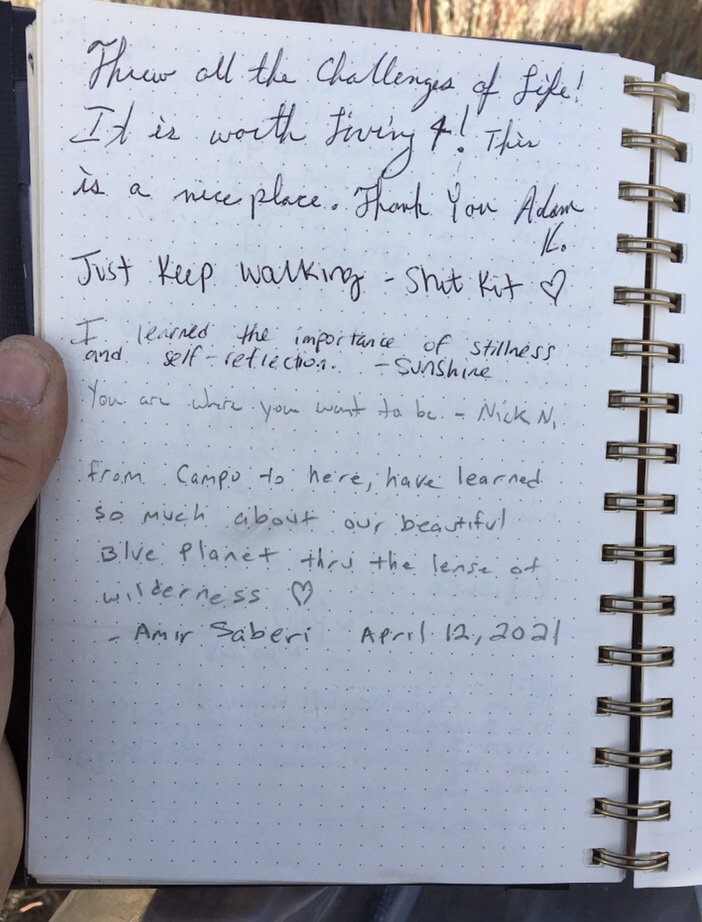 Threw all the Challenges of Life!
It is worth Living 4! This
is a nice place. Thank You Adam
K.
Just Keep Walking - Shit Kit ♡
I learned the importance of stillness
and self-reflection. - Sunshine
You are where you want to be - Nick N.
from Campo to here, have learned
so much about our beautiful
Blue Planet thru the lense of
wilderness ♡
- Amir Saberi April 12, 2021